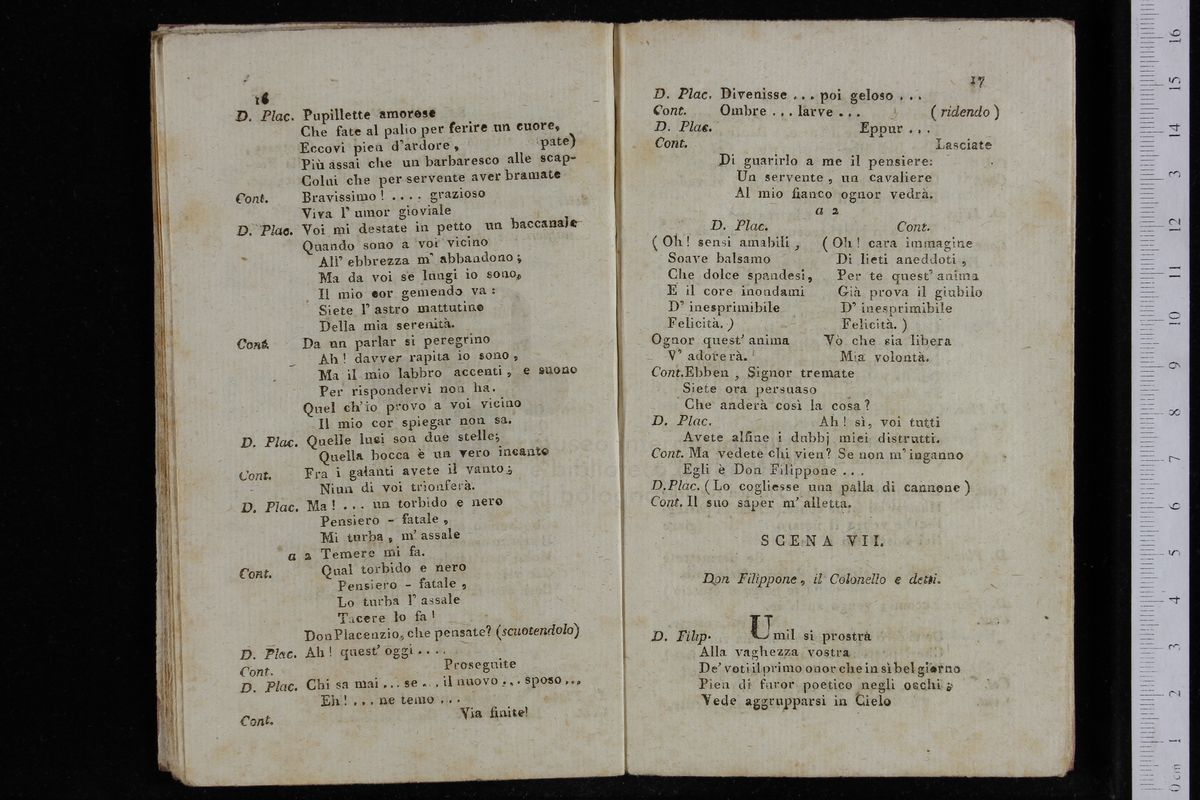 16
D. Plac. Pupillette amorose
Che fate al palio per ferire un cuore,
Eccovi pien d'ardore , pate)
Più assai che un barbaresco alle scap-
Colui che per servente aver bramate
Cont. Bravissimo ! . . . . grazioso
Viva l' umor gioviale
D. Plac. Voi mi destate in petto un baccanale
Quando sono a voi vicino
All' ebbrezza m' abbandono ;
Ma da voi se lungi io sono,
Il mio cor gemendo va :
Siete l' astro mattutino
Della mia serenità.
Cont. Da un parlar sì peregrino
Ah ! davver rapita io sono ,
Ma il mio labbro accenti , e suono
Per rispondervi non ha.
Quel ch'io provo a voi vicino
Il mio cor spiegar non sa.
D. Plac. Quelle luci son due stelle;
Quella bocca è un vero incanto
Cont. Fra i galanti avete il vanto ;
Niun di voi trionferà.
D. Plac. Ma ! . . . un torbido e nero
Pensiero - fatale ,
Mi turba , m' assale
a 2 Temere mi fa.
Cont. Qual torbido e nero
Pensiero - fatale ,
Lo turba l' assale
Tacere lo fa !
Don Placenzio, che pensate? (scuotendolo)
D. Plac. Ah ! quest' oggi . . . .
Cont. Proseguite
D. Plac. Chi sa mai . . . se . . . il nuovo . . . sposo . . .
Eh ! . . . ne temo . . .
Cont. Via finite!
17
D. Plac. Divenisse . . . poi geloso . . .
Cont. Ombre . . . larve . . . ( ridendo )
D. Plac. Eppur . . .
Cont. Lasciate
Di guarirlo a me il pensiere:
Un servente , un cavaliere
Al mio fianco ognor vedrà.
a 2
D. Plac. Cont.
( Oh ! sensi amabili , ( Oh ! cara immagine
Soave balsamo Di lieti aneddoti ,
Che dolce spandesi, Per te quest' anima
E il core inondami Già prova il giubilo
D' inesprimibile D' inesprimibile
Felicità. ) Felicità. )
Ognor quest' anima Vò che sia libera
V' adorerà. Mia volontà.
Cont. Ebben , Signor tremate
Siete ora persuaso
Che anderà così la cosa ?
D. Plac. Ah ! sì, voi tutti
Avete alfine i dubbj miei distrutti.
Cont. Ma vedete chi vien? Se non m' inganno
Egli è Don Filippone . . .
D. Plac. ( Lo cogliesse una palla di cannone )
Cont. Il suo saper m' alletta.
SCENA VII.
Don Filippone , il Colonello e detti.
D. Filip. Umil si prostra
Alla vaghezza vostra
De' voti il primo onor che in sì bel giorno
Pien di furor poetico negli occhi ;
Vede aggrupparsi in Cielo
0 cm 1 2 3 4 5 6 7 8 9 10 11 12 13 14 15 16